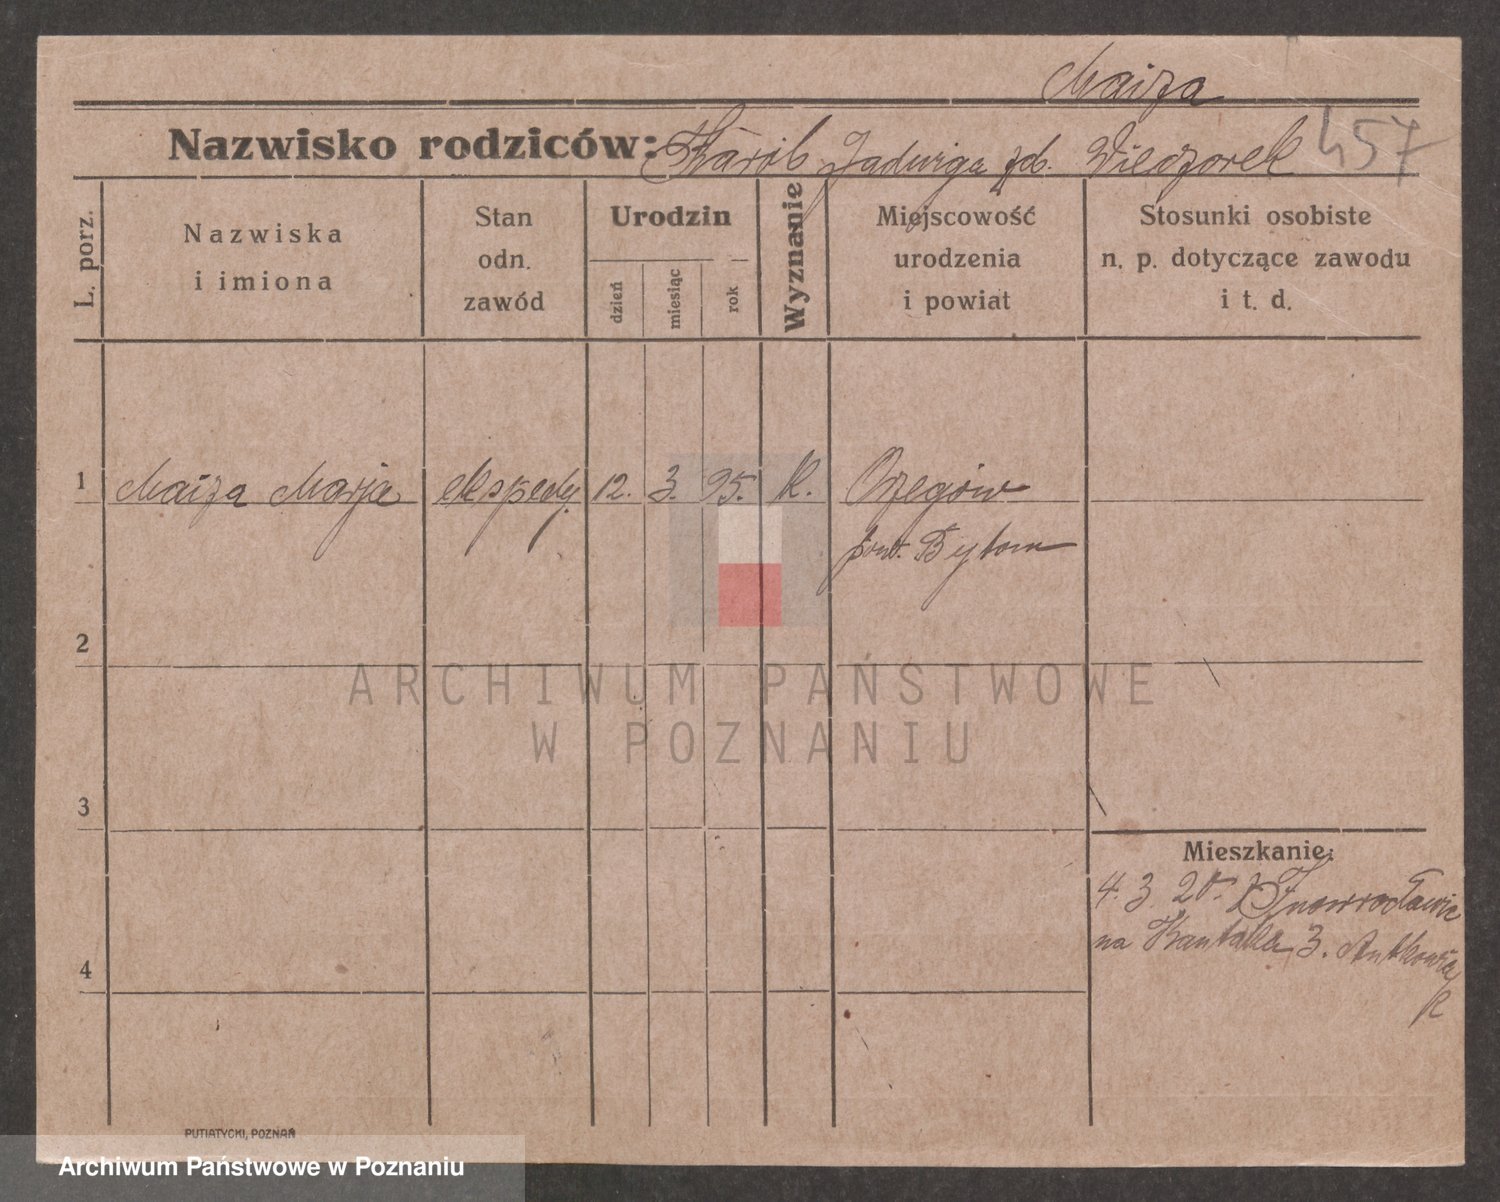 Maiza
Nazwisko rodziców: Karol Jadwiga zd. Wieczorek 457
L. porz.
Nazwiska
i imiona
Stan
odn.
zawód
Urodzin
dzień
miesiąc
rok
Wyznanie
Miejscowość
urodzenia
i powiat
Stosunki osobiste
n. p. dotyczące zawodu
i t. d.
1 Maiza Marja ekspedj. 12. 3. 95. K. Orzegów
pow. Bytom
2
ARCHIWUM PAŃSTWOWE
W POZNANIU
3
Mieszkanie:
4. 3. 20. z Inowrocławia
na Kantaka 3. Antkowiak
4
PUTIATYCKI, POZNAŃ
Archiwum Państwowe w Poznaniu